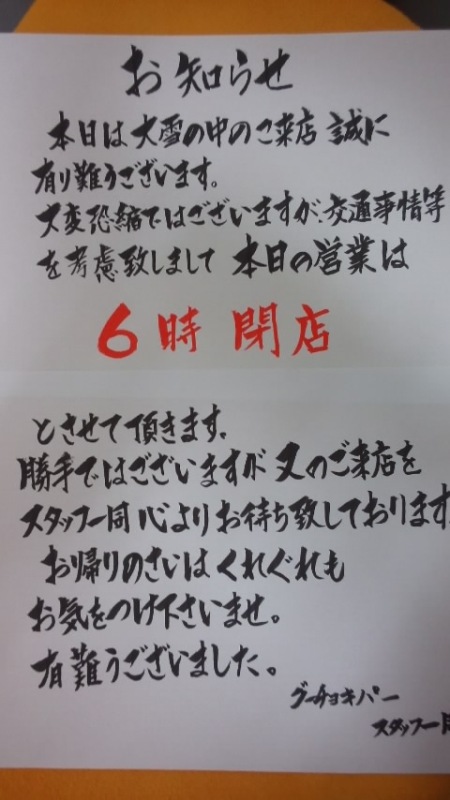 お知らせ
本日は大雪の中のご来店 誠に
有り難うございます。
大変恐縮ではございますが、交通事情等
を考慮致しまして 本日の営業は
6時 閉店
とさせて頂きます。
勝手ではございますが 又のご来店を
スタッフ一同 心よりお待ち致しております
お帰りのさいは くれぐれも
お気をつけ下さいませ。
有難うございました。
グーチョキパー
スタッフ一同